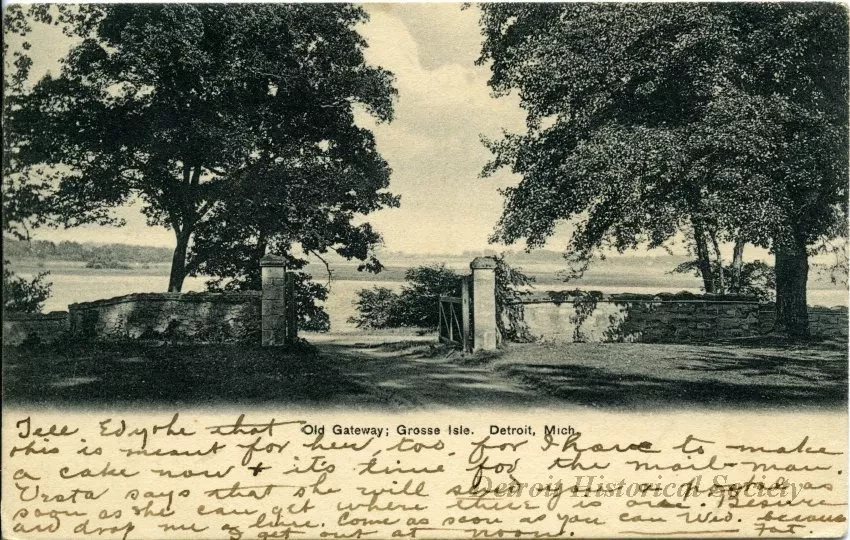 Old Gateway; Grosse Isle. Detroit, Mich.
Tell Edythe that
this is meant for her, too. for I have to make
a cake now & its time for the mail-man.
Vesta says that she will send you a photo as
soon as she can get where there is one. Besure
and drop me a line. Come as soon as you can Wed. because
I get out at noon. Pat.
Detroit Historical Society